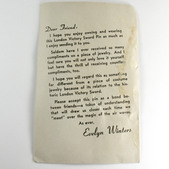 Dear Friend:
I hope you enjoy owning and wearing
this London Victory Sword Pin as much as
I enjoy sending it to you.
Seldom have I ever received so many
compliments on a piece of jewelry. And I
feel sure you will not only love it yourself,
but have the thrill of receiving countless
compliments, too.
I hope you will regard this as something
far different from a piece of costume
jewelry because of its relation to the his-
toric London Victory Sword.
Please accept this pin as a bond be-
tween us as a token of understanding
that will draw us closer each time we
"meet" over the magic of the air waves.
As ever,
Evelyn Winters